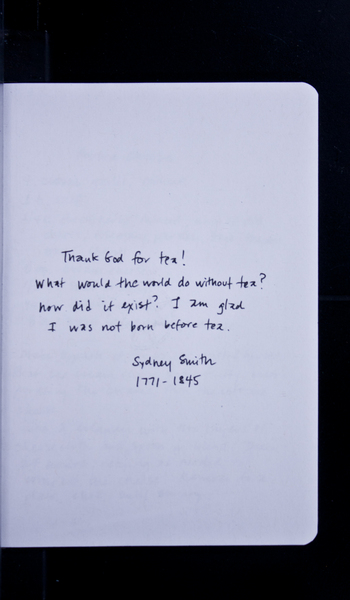 Thank God for tea!
What would the world do without tea?
how did it exist? I am glad
I was not born before tea.
Sydney Smith
1771-1845